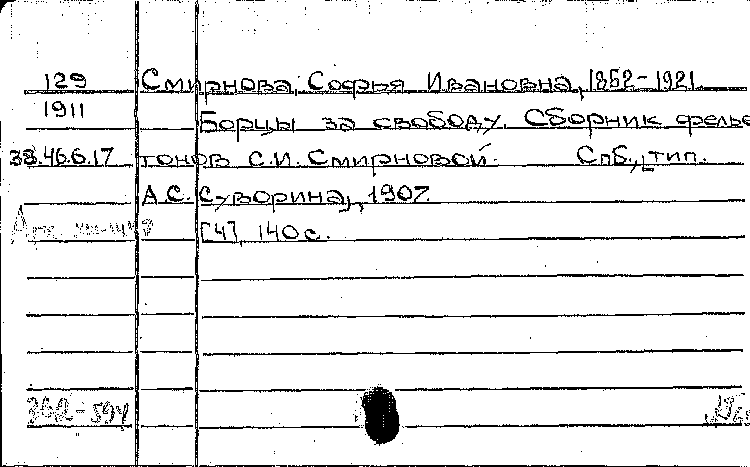 129 Смирнова, Софья Ивановна, 1852-1921.
1911 Борцы за свободу. Сборник фелье
38.46.6.17 тонов С.И. Смирновой. СпБ., [тип.
А.С. Суворина], 1907.
[4], 140 с.
362-594